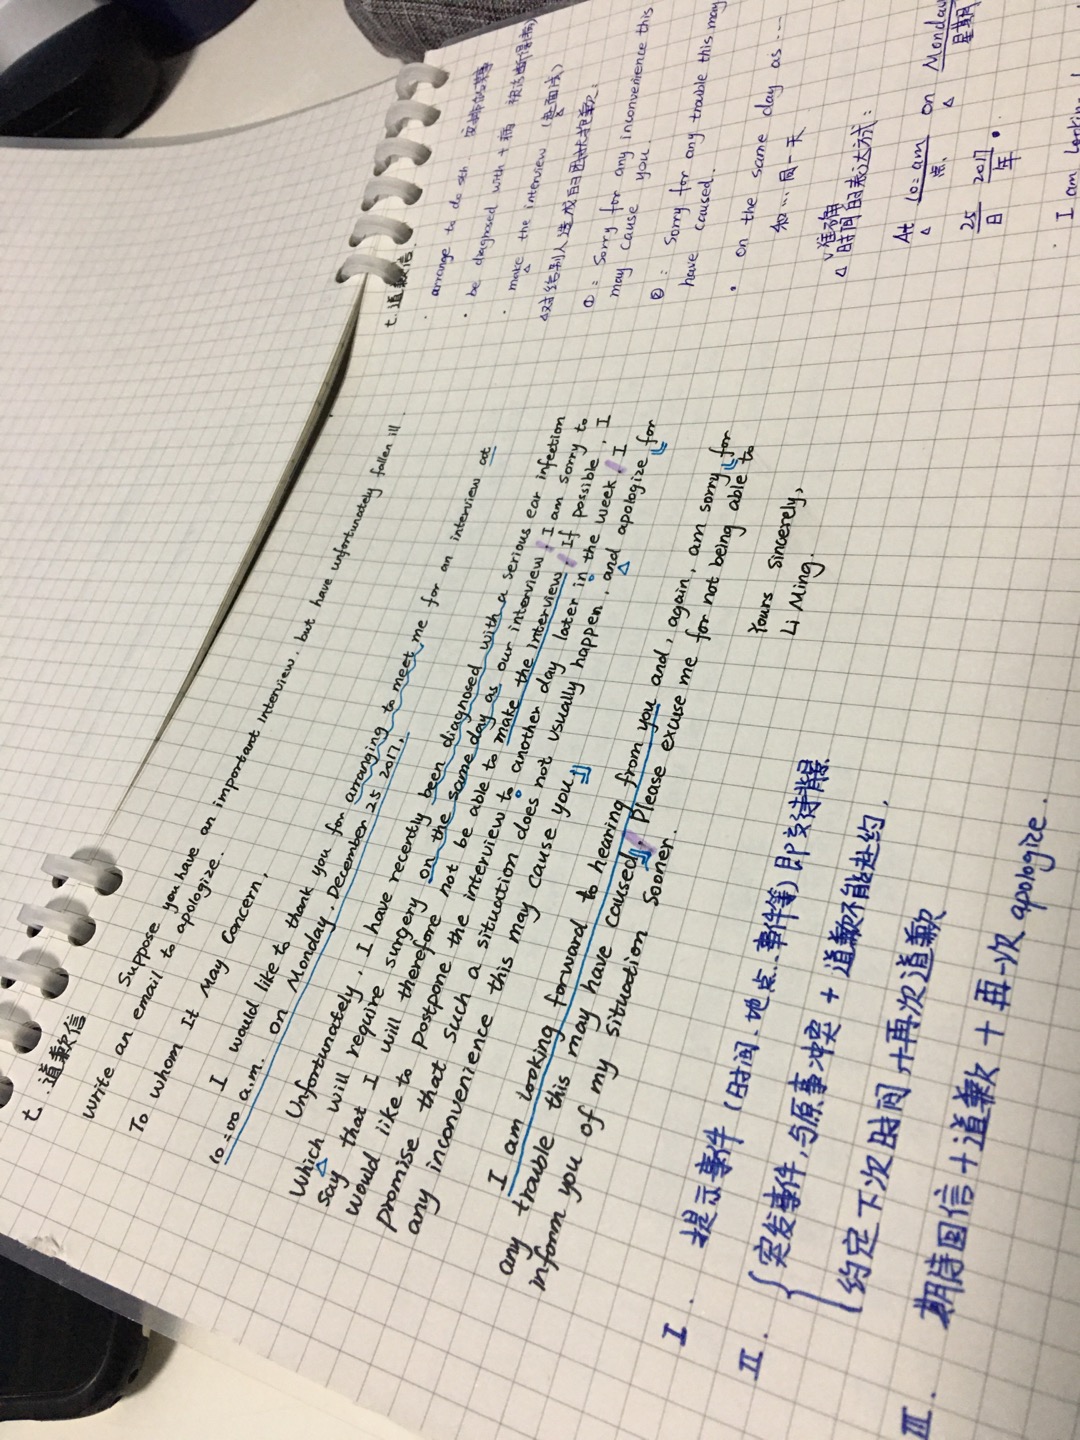 t. 道歉信
Suppose you have an important interview, but have unfortunately fallen ill.
Write an email to apologize.
To Whom It May Concern,
I would like to thank you for arranging to meet me for an interview at
10:00 a.m. on Monday, December 25 2017.
Unfortunately, I have recently been diagnosed with a serious ear infection
Which will require surgery on the same day as our interview. I am sorry to
say that I will therefore not be able to make the interview. If possible, I
would like to postpone the interview to another day later in the week. I
promise that such a situation does not usually happen, and apologize for
any inconvenience this may cause you.
I am looking forward to hearing from you and, again, am sorry for
any trouble this may have caused. Please excuse me for not being able to
inform you of my situation sooner.
Yours Sincerely,
Li Ming.
I. 提示事件(时间、地点、事件等)即交待背景
II. 突发事件,与原事冲突+道歉不能赴约.
约定下次时间+再次道歉
III. 期待回信+道歉+再一次 apologize.
t. 道歉信
· arrange to do sth
· be diagnosed with + 病
· make the interview
①: Sorry for any inconvenience this
may cause you
②: Sorry for any trouble this may
have caused..
· on the same day as...
和...同一天
√准确
△时间的表达方式:
At 10:am on Monday
点 星期
25 2017.
日 年
· I am looking